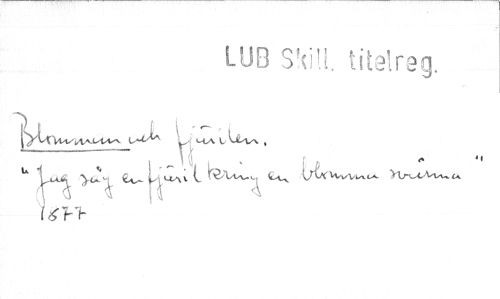 LUB Skill. titelreg.
Blomman och fjärilen.
"Jag såg en fjäril kring en blomma svärma"
1877